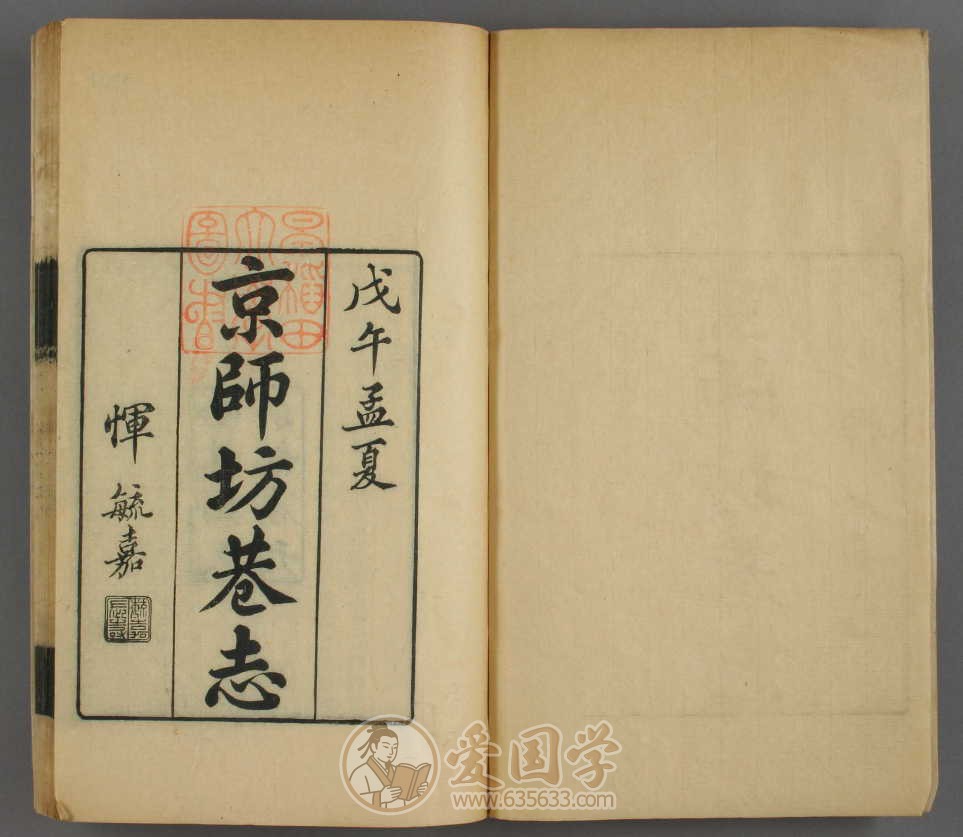 戊午孟夏
京師坊巷志
惲毓嘉
爱国学
www.635633.com